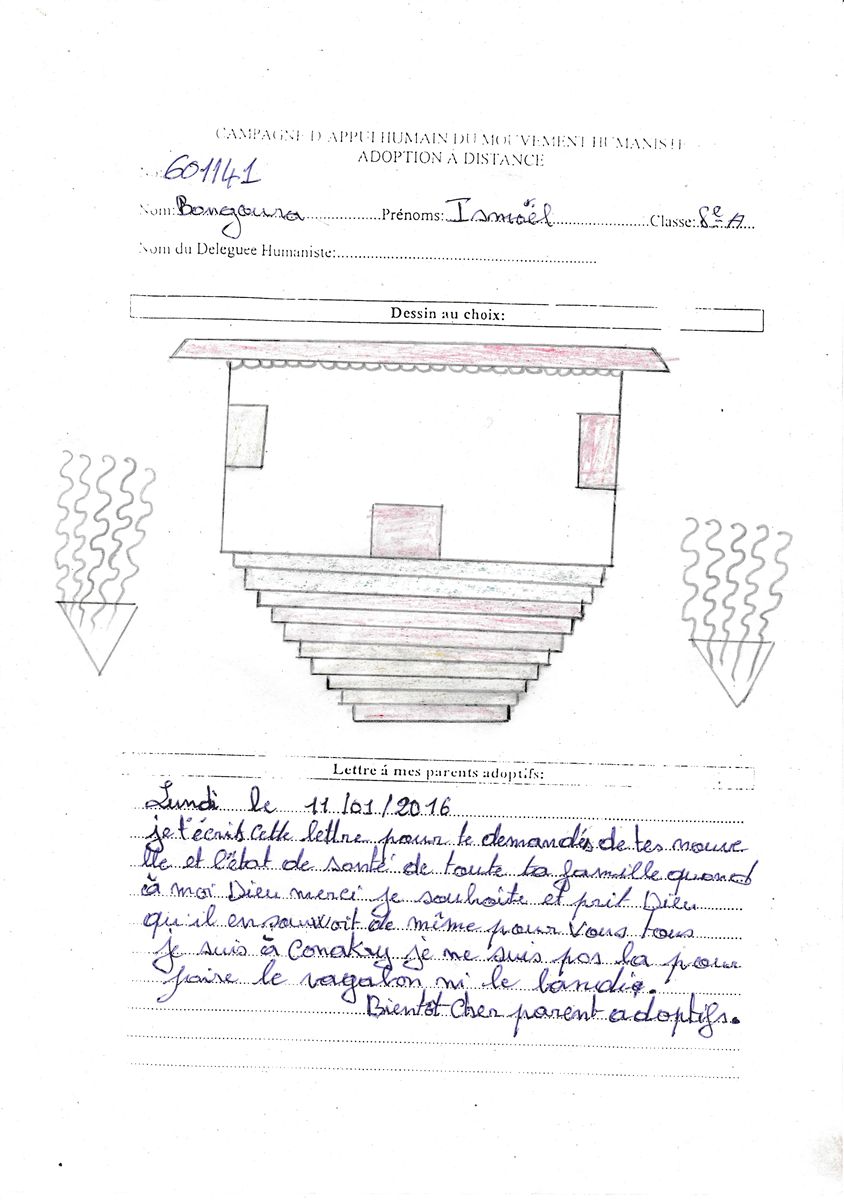 CAMPAGNE D'APPUI HUMAIN DU MOUVEMENT HUMANISTE
ADOPTION À DISTANCE
No: 601141
Nom: Bangoura Prénoms: Ismaël Classe: 8e A
Nom du Deleguee Humaniste:
Dessin au choix:
Lettre á mes parents adoptifs:
Lundi le 11/01/2016
je t'écrit cette lettre pour te demandés de tes nouve
lle et l'état de santé de toute ta famille quand
à moi Dieu merci je souhaite et prit Dieu
qu'il en soit de même pour Vous tous
je suis à Conakry je ne suis pas la pour
faire le vagabon ni le bandie.
Bientôt Cher parent adoptifs.